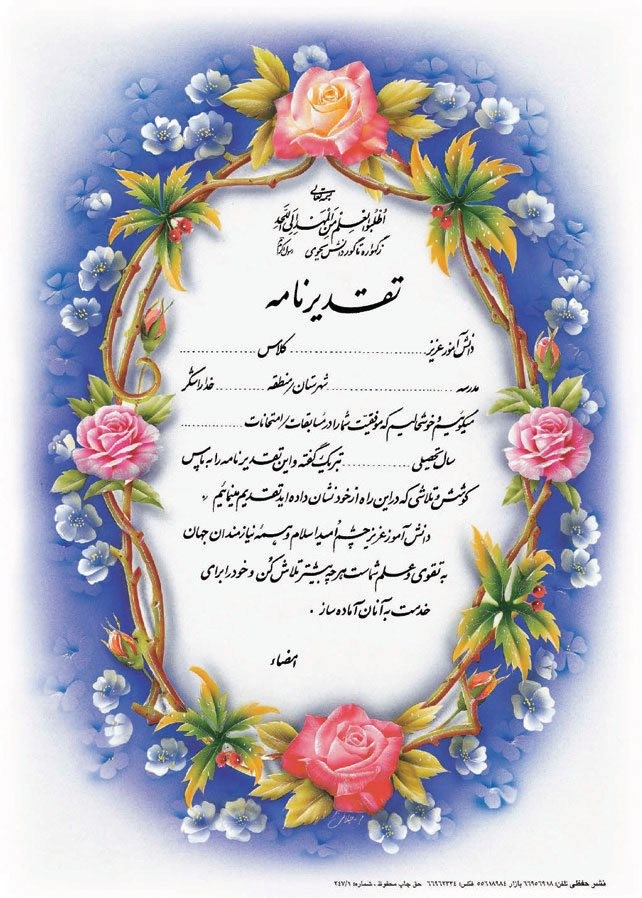 بسمه تعالی
اُطلُبُوا العِلمَ مِنَ المَهدِ اِلَی اللَّحدِ
زگهواره تا گور دانش بجوی
تقدیرنامه
دانش آموز عزیز .......................... کلاس ......................
مدرسه .......................... شهرستان/منطقه .............. خدا را شکر
میگوئیم و خوشحالیم که موفقیت شما را در مسابقات/امتحانات ..............
سال تحصیلی .............. تبریک گفته و این تقدیرنامه را به پاس
کوشش و تلاشی که در این راه از خود نشان داده اید تقدیم مینمائیم
دانش آموز عزیز چشم اُمید اسلام و همهٔ نیازمندان جهان
به تقوی و علم شماست هر چه بیشتر تلاش کُن و خود را برای
خدمت به آنان آماده ساز .
امضاء
نشر حفظی تلفن: ۶۶۹۵۶۹۱۸ بازار ۵۵۶۱۸۹۸۴ فکس: ۶۶۹۶۲۳۳۴ حق چاپ محفوظ . شماره: ۲۴۷/۱